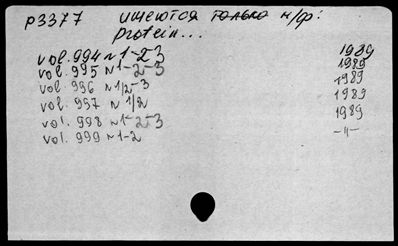 p3377 имеются только н/ф:
protein...
vol. 994 N 1-2-3 1989
vol. 995 N 1-2-3 1989
vol. 996 N 1/2-3 1989
vol. 997 N 1/2 1989
vol. 998 N 1-2-3 1989
vol. 999 N 1-2 -"-